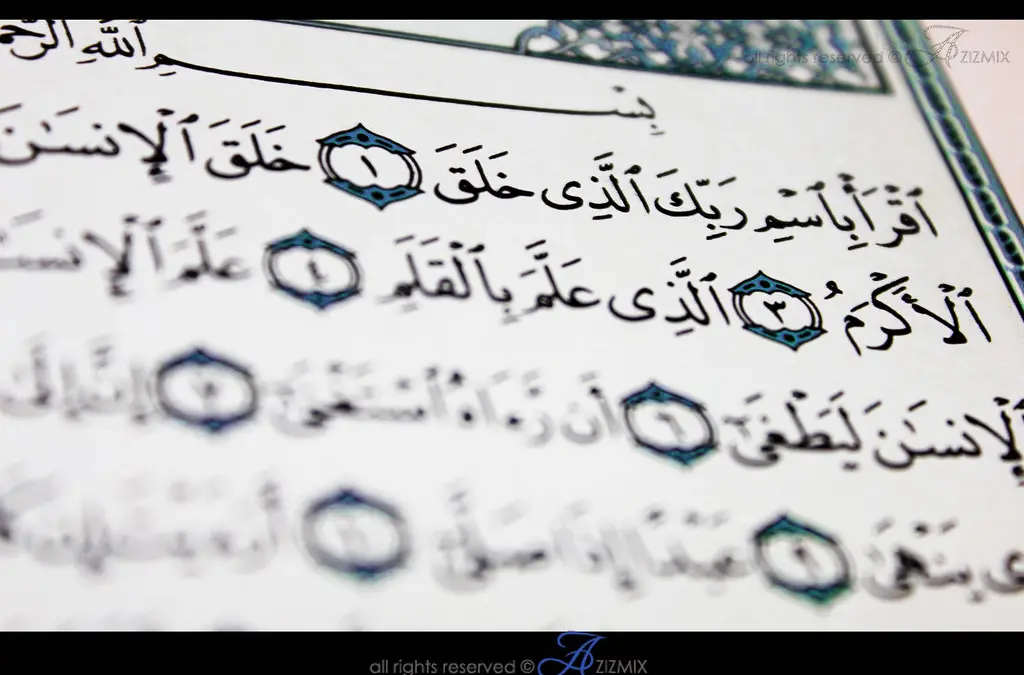 all rights reserved © AZIZMIX
بِسْمِ ٱللَّهِ ٱلرَّحْمَ
ٱقْرَأْ بِٱسْمِ رَبِّكَ ٱلَّذِى خَلَقَ ١ خَلَقَ ٱلْإِنسَٰنَ
ٱلْأَكْرَمُ ٣ ٱلَّذِى عَلَّمَ بِٱلْقَلَمِ ٤ عَلَّمَ ٱلْإِنسَٰ
ٱلْإِنسَٰنَ لَيَطْغَىٰٓ ٦ أَن رَّءَاهُ ٱسْتَغْنَىٰٓ ٧ إِنَّ إِلَىٰ
ى يَنْهَىٰ ٩ عَبْدًا إِذَا صَلَّىٰٓ ١٠
all rights reserved © AZIZMIX